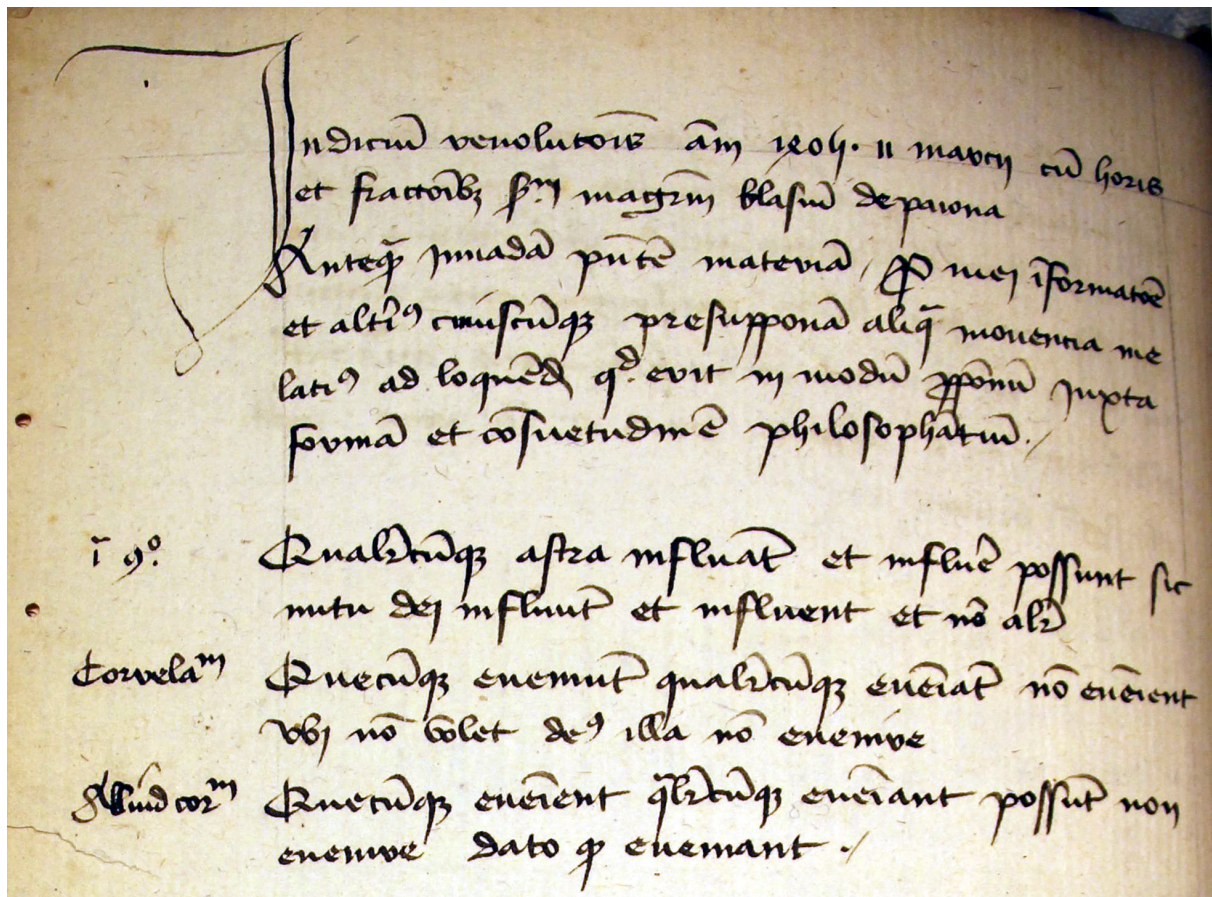 Iudiciū reuolutōis ām 1804. 11 marcij cū horis
et fractōibꝫ s.ᵐ magrm̄ blasiū de parma
Anteqᷓ Inuadā pn̄tē materiā / ꝓ mei īformatōe
et altiꝰ cuiuscūqꝫ presupponā aliqᷓ mouencia me
latiꝰ ad loquēdꝫ qᵈ. erit in modū ꝓpōnū Juxta
formā et cōsuetudinē philosophātiū./
ī 9º. Qualr̄cūqꝫ astra influāt et influe᷑ possunt sic
nutu dei influūt et influent et nō alr̄
Correlaᵐ Quecūqꝫ eueniūt qualr̄cūqꝫ euēiāt nō euēient
vbi nō vōlet deꝰ illa nō euenire
Aliud corᵐ Quecūqꝫ euēient qᷓlr̄cūqꝫ euēiant possūt non
euenire dato ꝙ eueniant ./